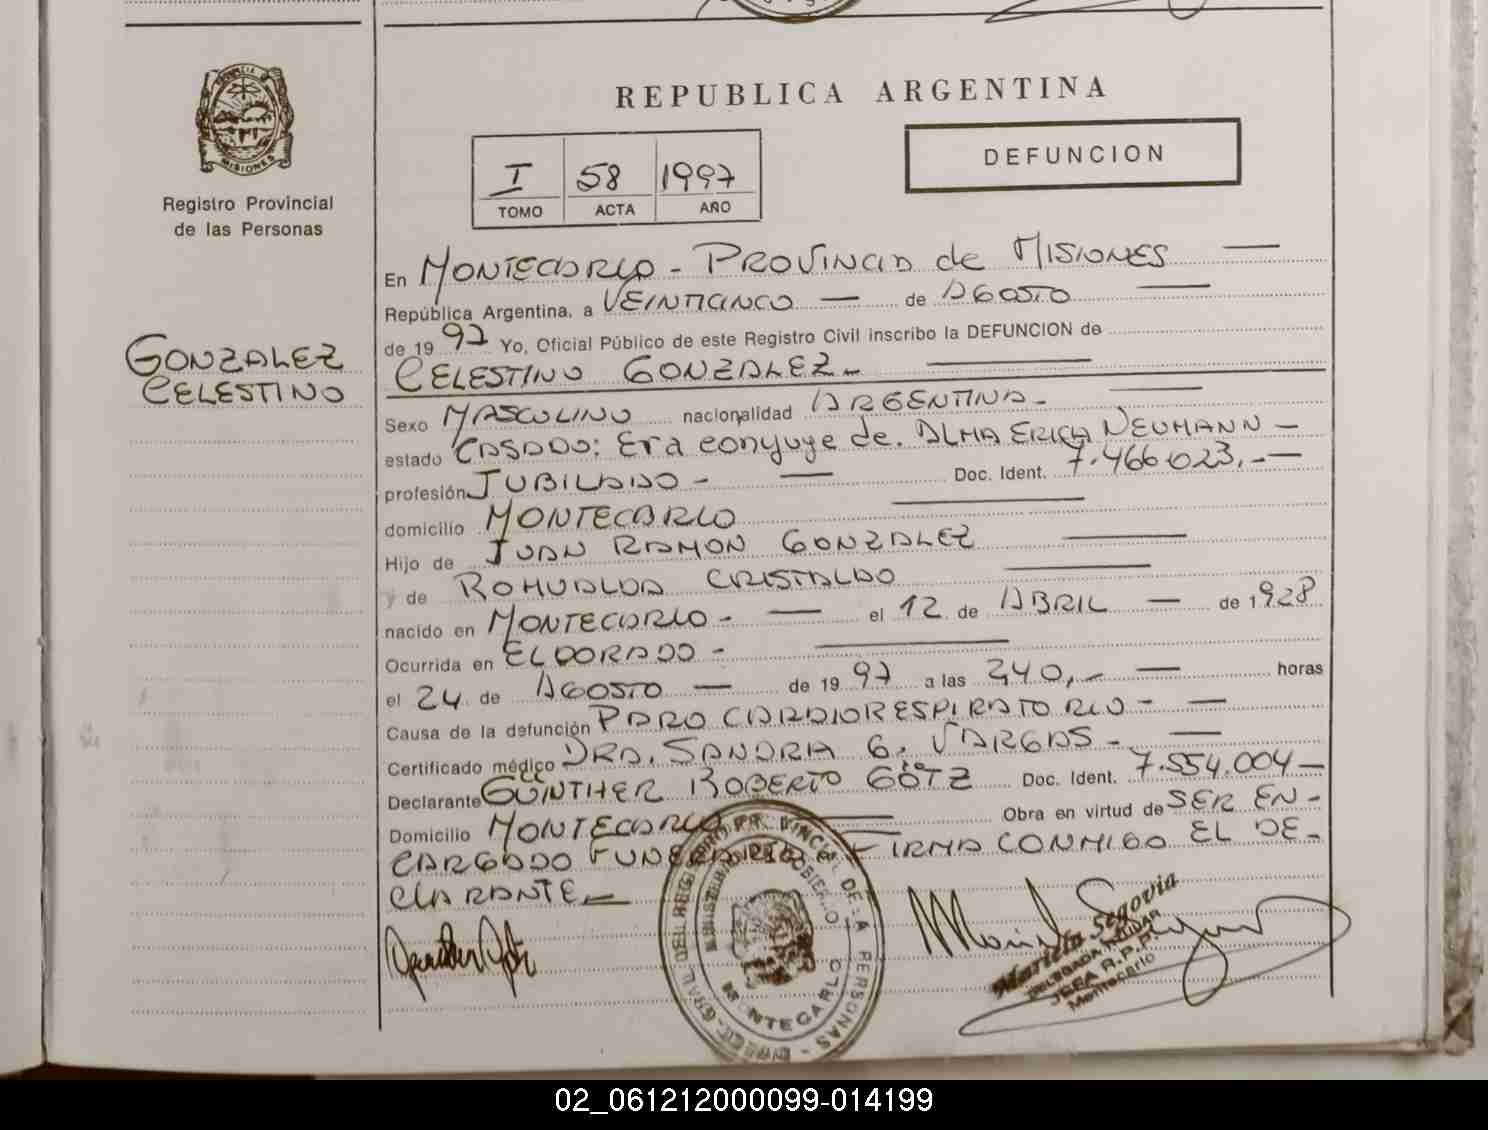 REPUBLICA ARGENTINA
MISIONES
Registro Provincial
de las Personas
I 58 1997
TOMO ACTA AÑO
DEFUNCION
GONZALEZ
CELESTINO
En MONTECARLO - PROVINCIA de MISIONES
República Argentina, a VEINTICINCO de AGOSTO
de 1997 Yo, Oficial Público de este Registro Civil inscribo la DEFUNCION de
CELESTINO GONZALEZ.-
Sexo MASCULINO nacionalidad ARGENTINA.-
estado CASADO: Era conyuye de. ALMA ERICA NEUMANN -
profesión JUBILADO - Doc. Ident. 7.466.023.-
domicilio MONTECARLO
Hijo de JUAN RAMON GONZALEZ
y de ROMUALDA CRISTALDO
nacido en MONTECARLO - el 12 de ABRIL de 1928
Ocurrida en ELDORADO -
el 24 de AGOSTO de 1997 a las 2,40,- horas
Causa de la defunción PARO CARDIORESPIRATORIO -
Certificado médico DRA. SANDRA G. VARGAS -
Declarante GÜNTHER ROBERTO GÖTZ Doc. Ident. 7.554.004 -
Domicilio MONTECARLO Obra en virtud de SER EN-
CARGADO FUNERARIO FIRMA CONMIGO EL DE-
CLARANTE -
MONTECARLO
Mariela Segovia
DELEGADA TITULAR
JEFA R.P.P.
Montecarlo
02_061212000099-014199